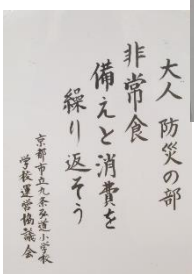 大人 防災の部
非常食
備えと消費を
繰り返そう
京都市立九条弘道小学校
学校運営協議会